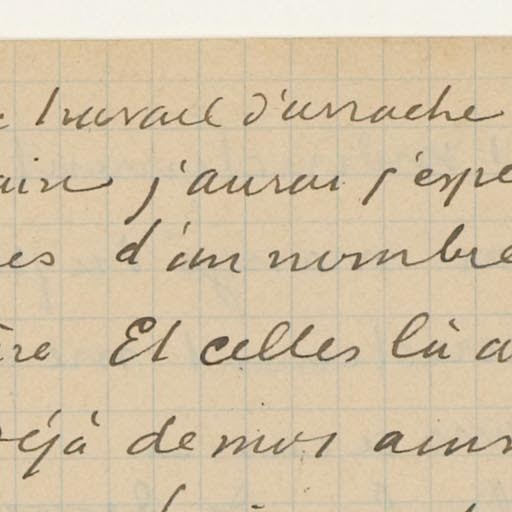 travail d'arrache
j'aurai j'espe
es d'un nombre
re Et celles là a
déjà de mes ains